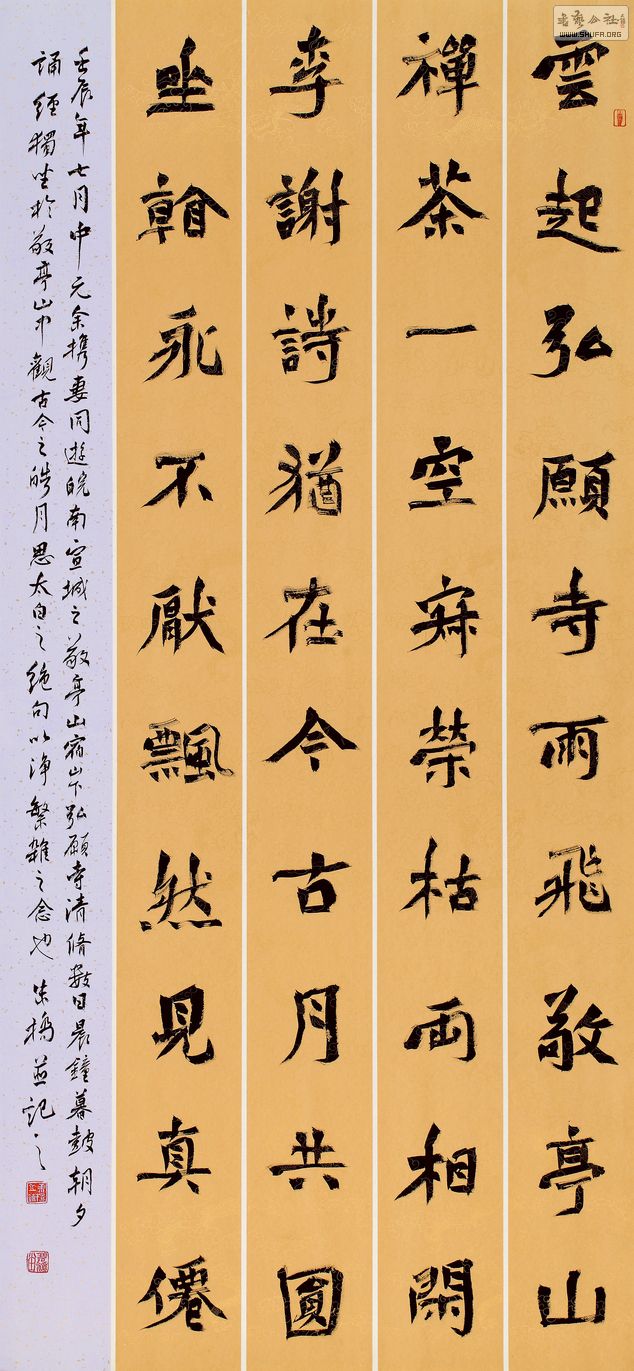 書藝公社
www.SHUFA.ORG
雲起弘願寺雨飛敬亭山
禪茶一空寂榮枯両相閑
李謝詩猶在今古月共圓
坐看永不厭飄然見真僊
壬辰年七月中元余携妻同遊皖南宣城之敬亭山宿山下弘願寺清脩數日晨鐘暮鼓朝夕
誦經獨坐於敬亭山中觀古今之皓月思太白之絶句以淨繁雜之念也 朱橋並記之